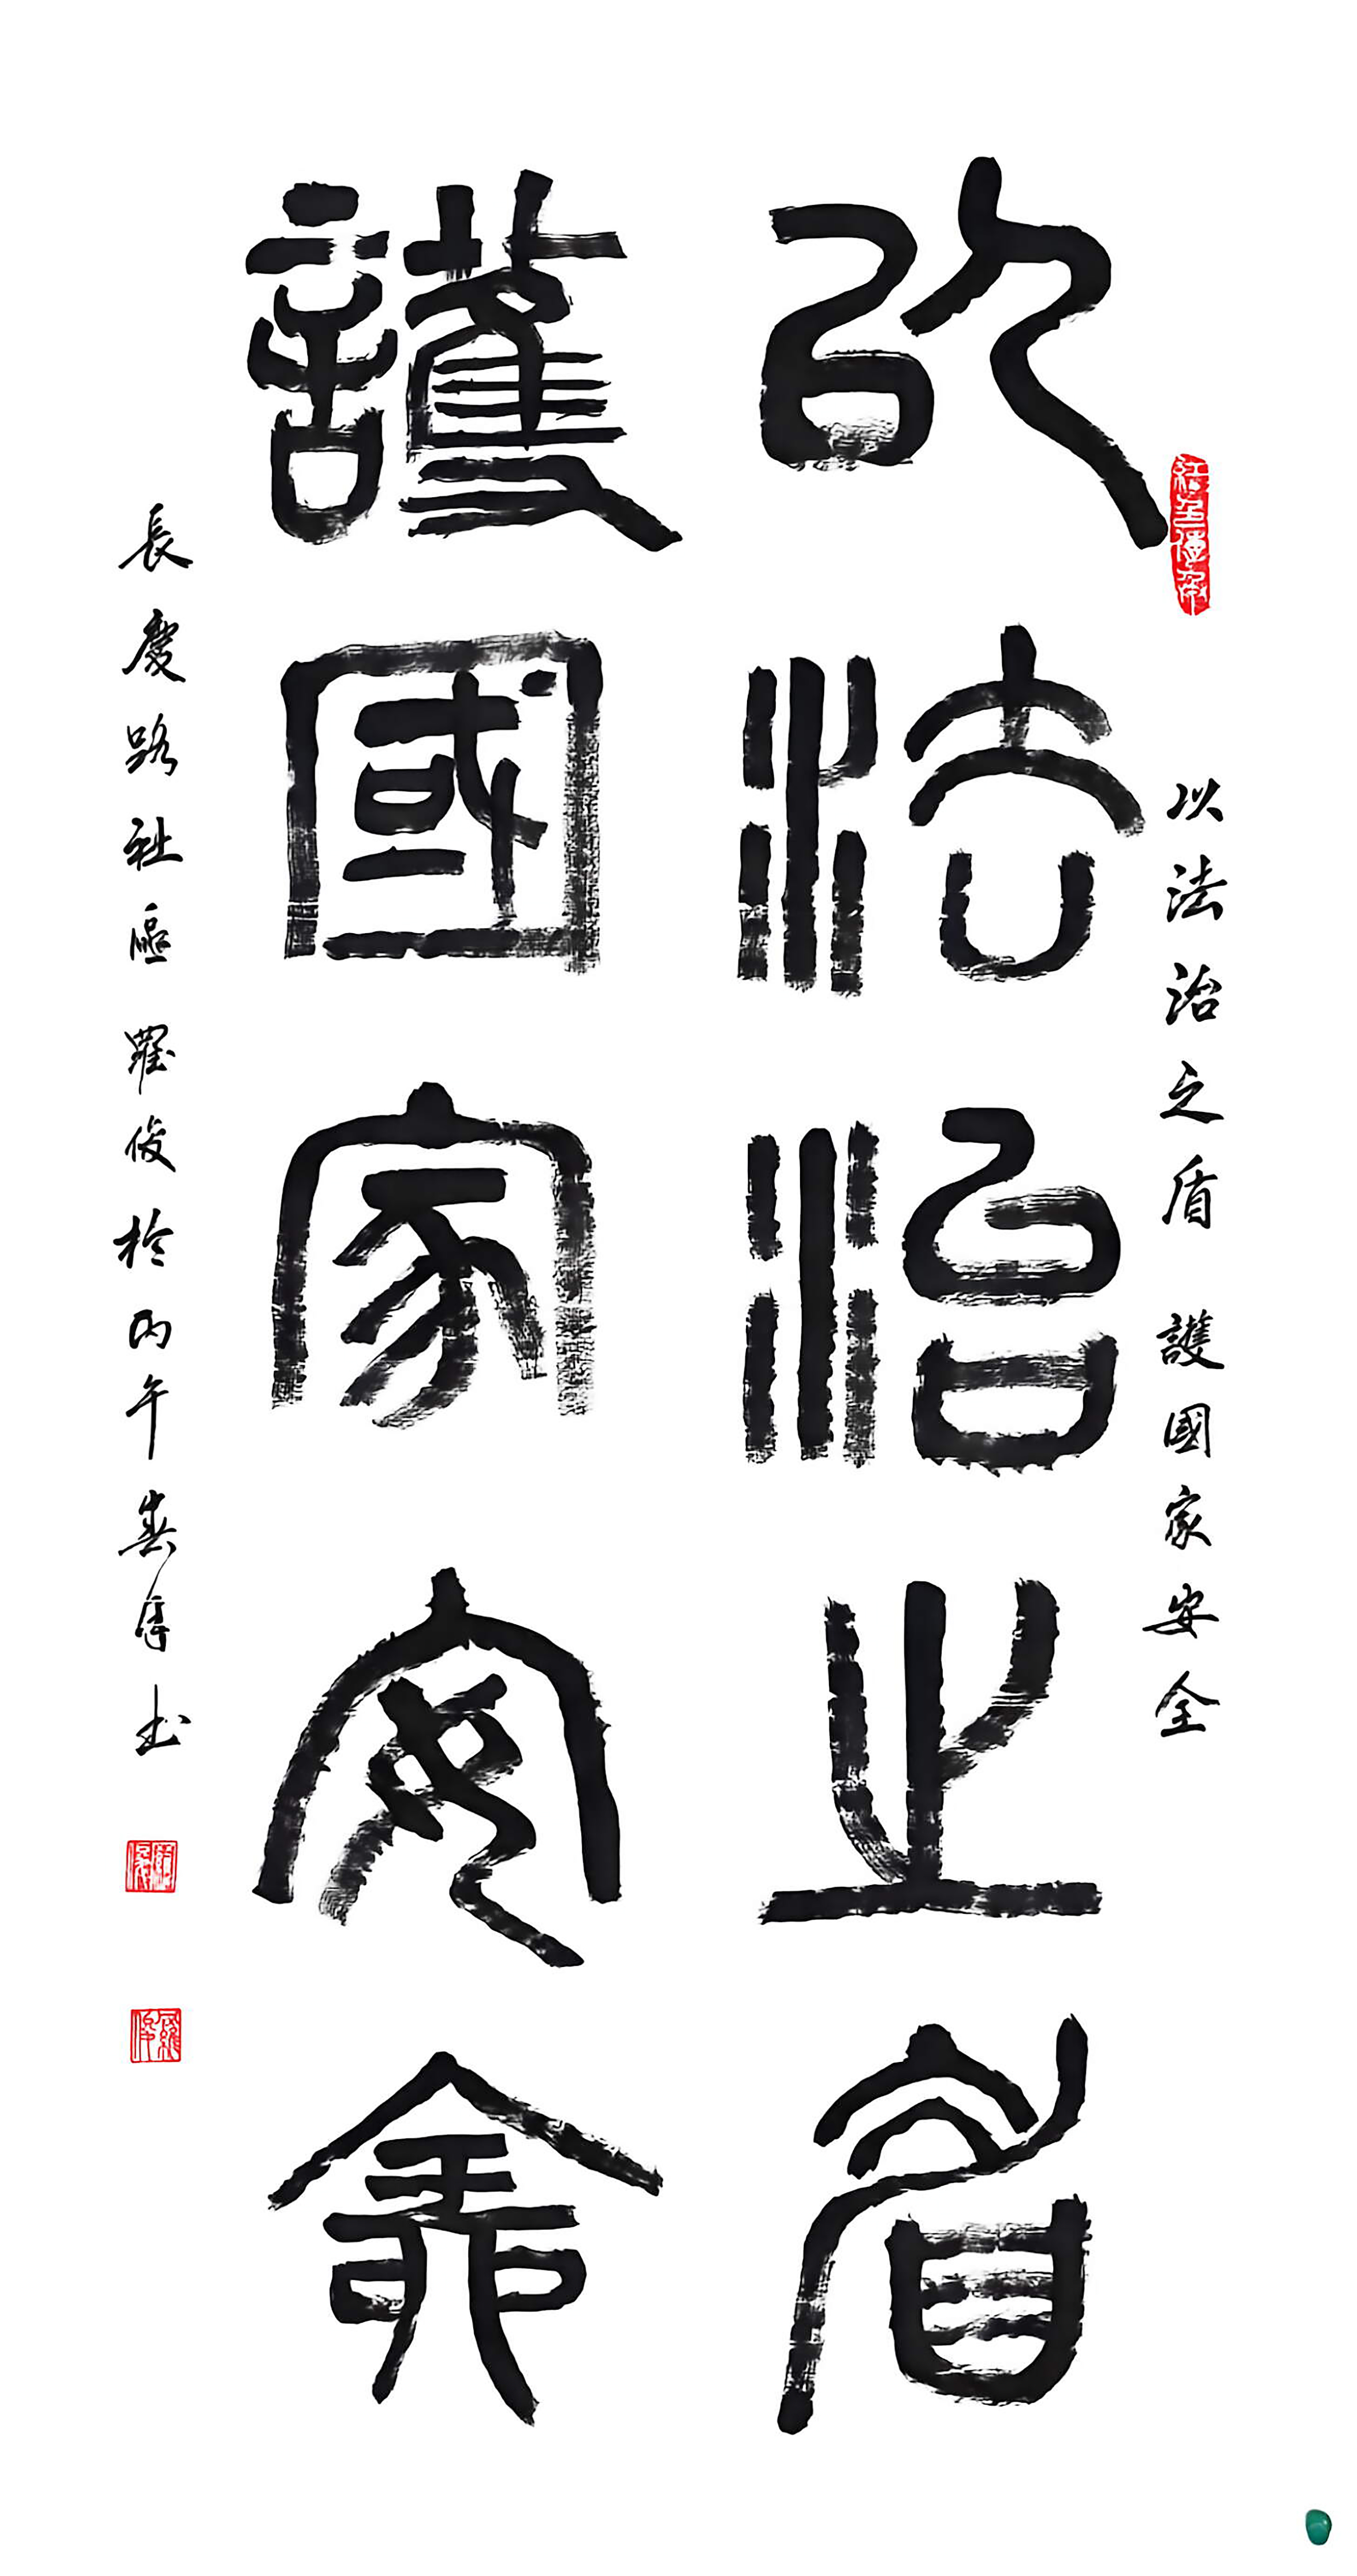 以法治之盾
護國家安全
以法治之盾 護國家安全
長慶路社區 羅俊於丙午春年書